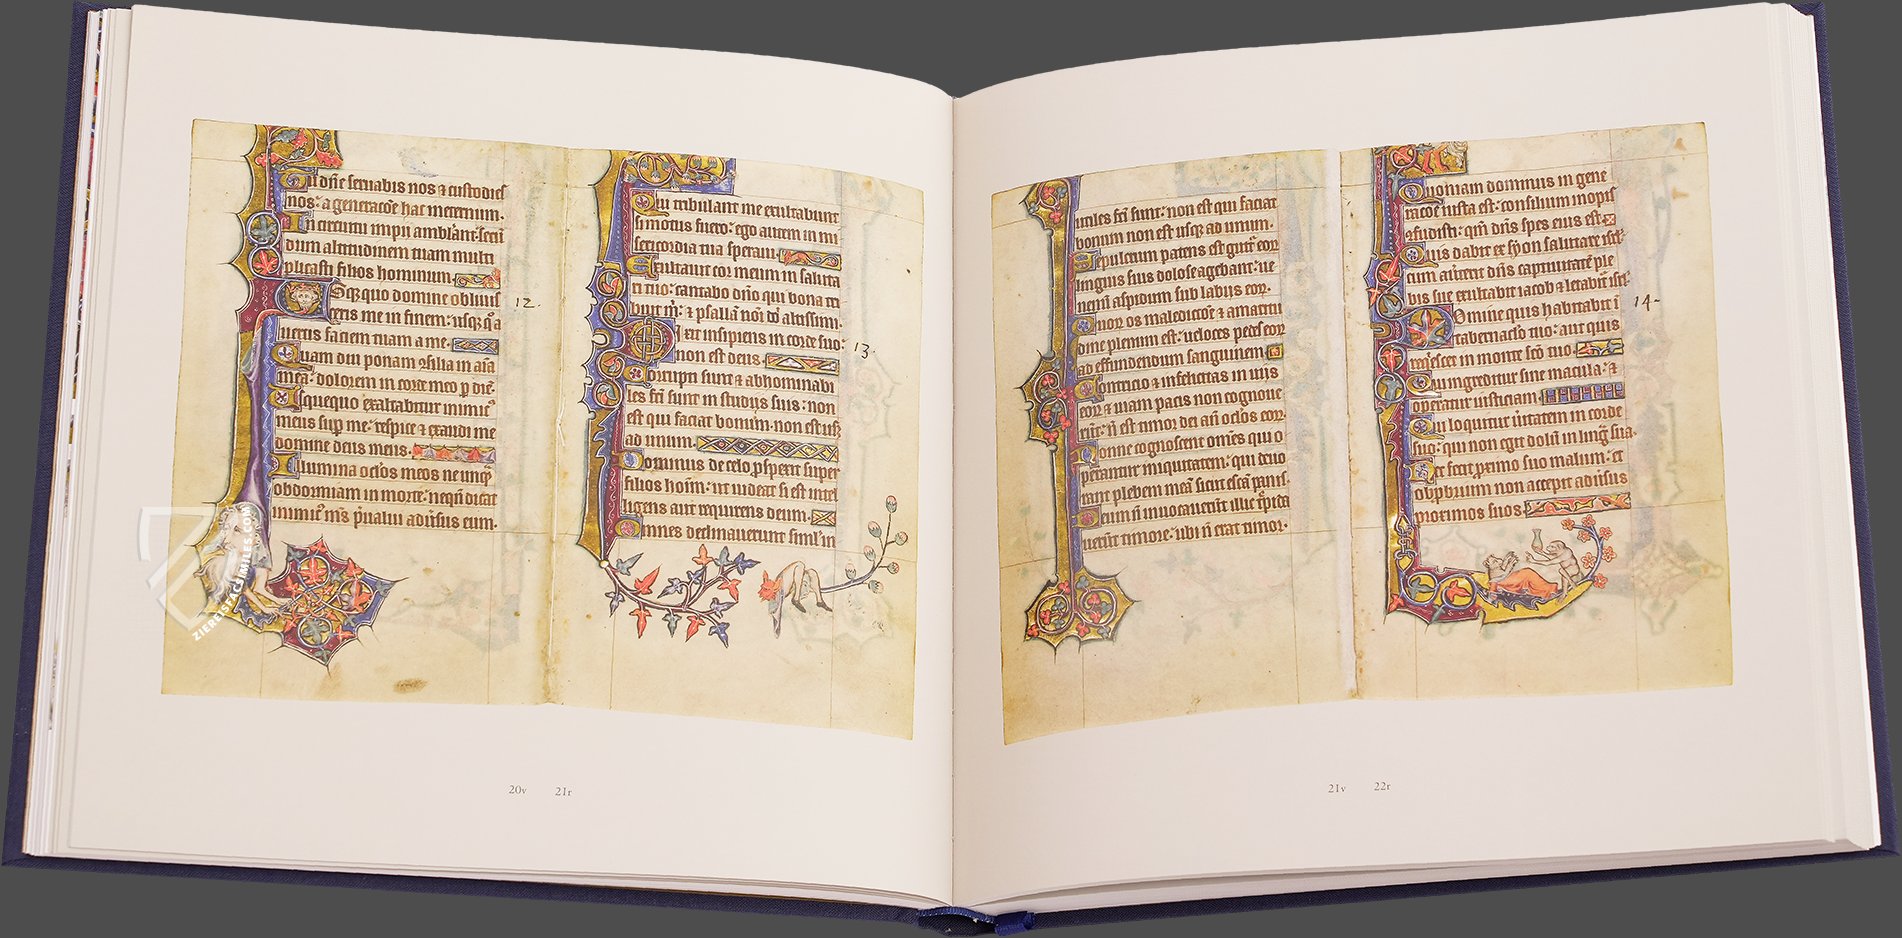 Tu dñe seruabis nos ⁊ custodies
nos: a generacōe hac in eternum.
In circuitu impii amblāt: sc̄dm
dum altitudinem tuam multi
plicasti filios hominum.
Usq̨quo domine obliuis
ceris me in finem: usq̨q̊ a
uertis faciem tuam a me.
12.
Quam diu ponam ɔsilia in aīa
mea: dolorem in corde meo p̲ diē.
Usquequo exaltabitur inimic᷒
meus sup̲ me: respice ⁊ exaudi me
domine deus meus.
Illumina oc̄los meos ne unq̄
obdormiam in morte: neqn̄ dicat
inimic᷒ m̄s p̱ualui adūsus eum.
Qui tribulant me exultabunt
si motus fuero: ego autem in mi
sericordia tua speraui.
Exultauit cor meum in saluta
ri tuo: cantabo dn̄o qui bona tri
buit m̄: ⁊ psallā nōī dn̄i altissimi.
Dixit insipiens in corde suo:
non est deus.
13.
Corrupti sunt ⁊ abhominabi
les fc̄i sunt in studiis suis: non
est qui faciat bonum: non est usq̨
ad unum.
Dominus de celo p̲spexit super
filios hoīm: ut uideat si est intel
ligens aut requirens deum.
Omnes declinauerunt siml̓ in
utiles fc̄i sunt: non est qui faciat
bonum non est usq̨ ad unum.
Sepulcrum patens est gutt̄ eoꝝ
linguis suis dolose agebant: ue
nenū aspidum sub labiis eoꝝ.
Quoꝝ os maledictōe ⁊ amaritu
dine plenum est: ueloces pedes eoꝝ
ad effundendum sanguinem
Contricio ⁊ infelicitas in uiis
eoꝝ ⁊ uiam pacis non cognoue
rūt: n̄ est timor dei an̄ oc̄los eoꝝ.
Nonne cognoscent om̄es qui o
perantur iniquitatem: qui deuo
rant plebem meā sicut escā panis.
Deum n̄ inuocauerūt illic t̓pida
uerūt timore: ubi n̄ erat timor.
Quoniam dominus in gene
racōe iusta est: consilium inopis
ɔfudistis: qm̄ dn̄s spes eius est
Quis dabit ex syon salutare isrl̓:
cum auūtit dn̄s captiuitatē ple
bis sue exultabit iacob ⁊ letabit̄ isrl̓.
Domine quis habitabit ī
tabernac̄lo tuo: aut quis
reqescet in monte sc̄o tuo.
14.
Qui ingreditur sine macula: ⁊
operatur iusticiam.
Qui loquitur ūitatem in corde
suo: qui non egit dolū in ling̓ sua.
Nec fecit p̱ximo suo malum: et
obp̱brium non accepit adūsus
proximos suos.
20v 21r
21v 22r
ZIEREISFACSIMILES.COM